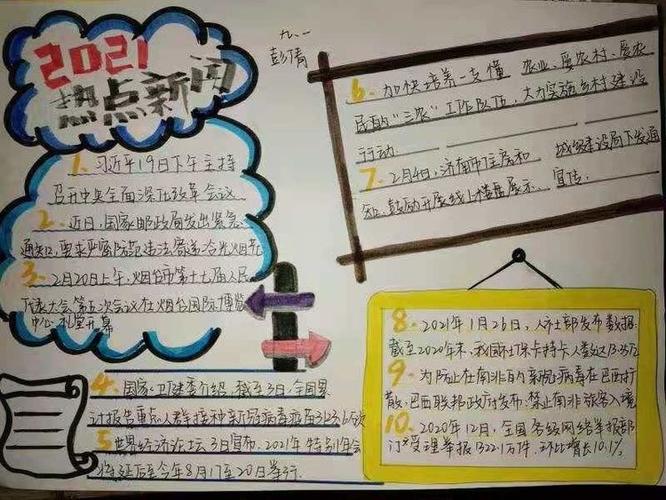 2021
热点新闻
九.一
彭倩
1、习近平19日下午主持
召开中央全面深化改革会议
2、近日,国家邮政局发出紧急
通知,要求严密防范违法寄递
3、2月20日上午,烟台市第十七届人民
代表大会第五次会议在烟台国际博览
中心礼堂开幕
4、国家卫健委介绍,截至3日,全国累
计报告重点人群接种新冠病毒疫苗312.36万次
5世界经济论坛3日宣布,2021年特别年会
将延后至今年8月17至20日举行.
6、加快培养一支懂农业、爱农村、爱农
民的“三农”工作队伍,大力实施乡村建设
行动.
7、2月4日,济南市住房和城乡建设局下发通
知,鼓励开展线上楼盘展示、宣传.
8、2021年1月26日,人社部发布数据,
截至2020年末,我国社保卡持卡人数达13.35亿
9、为防止在南非的新冠病毒在巴西扩
散,巴西联邦政府发布,禁止南非旅客入境
10、2020年12月,全国各级网络举报部
门受理举报1322.1万件,环比增长10.1%